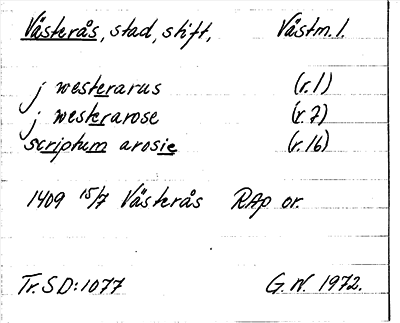 Västerås, stad, stift, Västm. l.
j westerarus (r. 1)
j westerarose (r. 7)
scriptum arosie (r. 16)
1409 15/7 Västerås RAp or.
Tr. SD: 1077 G. W. 1972.